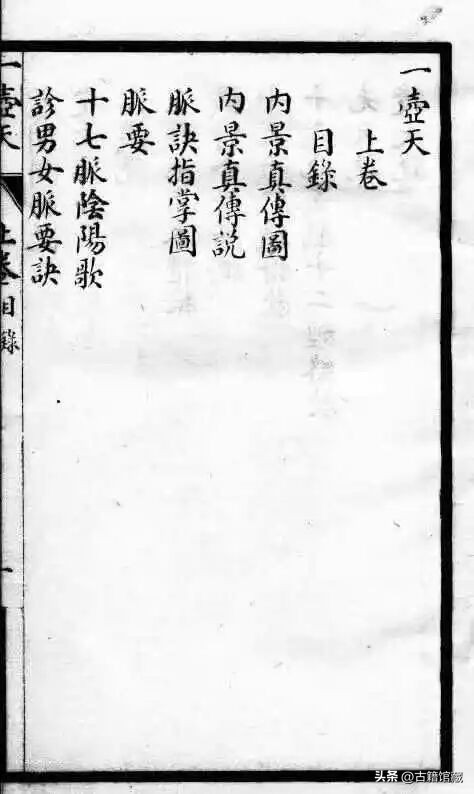 一壺天
上卷
目錄
內景真傳圖
內景真傳説
脈訣指掌圖
脈要
十七脈陰陽歌
診男女脈要訣
一壺天
上卷目錄
一
头条 @古籍馆藏